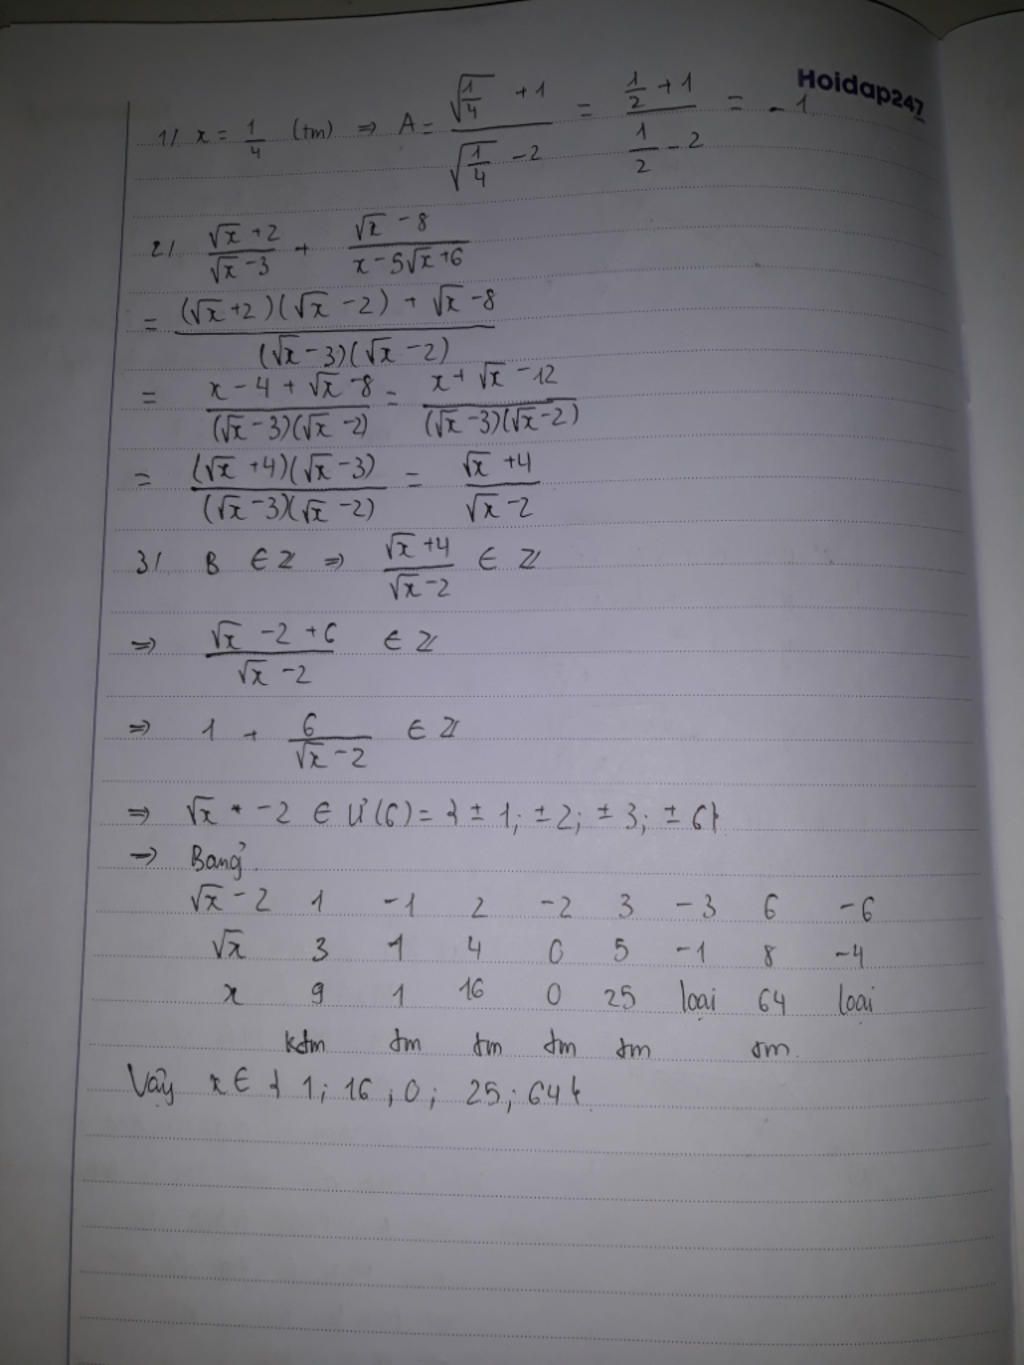 Hoidap247
1/ x = 1/4 (tm) ⇒ A = (√(1/4) + 1)/(√(1/4) - 2) = (1/2 + 1)/(1/2 - 2) = -1
2/ (√x + 2)/(√x - 3) + (√x - 8)/(x - 5√x + 6)
= ((√x + 2)(√x - 2) + √x - 8)/((√x - 3)(√x - 2))
= (x - 4 + √x - 8)/((√x - 3)(√x - 2)) = (x + √x - 12)/((√x - 3)(√x - 2))
= ((√x + 4)(√x - 3))/((√x - 3)(√x - 2)) = (√x + 4)/(√x - 2)
3/ B ∈ Z ⇒ (√x + 4)/(√x - 2) ∈ Z
⇒ (√x - 2 + 6)/(√x - 2) ∈ Z
⇒ 1 + 6/(√x - 2) ∈ Z
⇒ √x - 2 ∈ Ư(6) = {± 1; ± 2; ± 3; ± 6}
→ Bảng
√x - 2 1 -1 2 -2 3 -3 6 -6
√x 3 1 4 0 5 -1 8 -4
x 9 1 16 0 25 loại 64 loại
ktm tm tm tm tm tm
Vậy x ∈ { 1; 16; 0; 25; 64 }